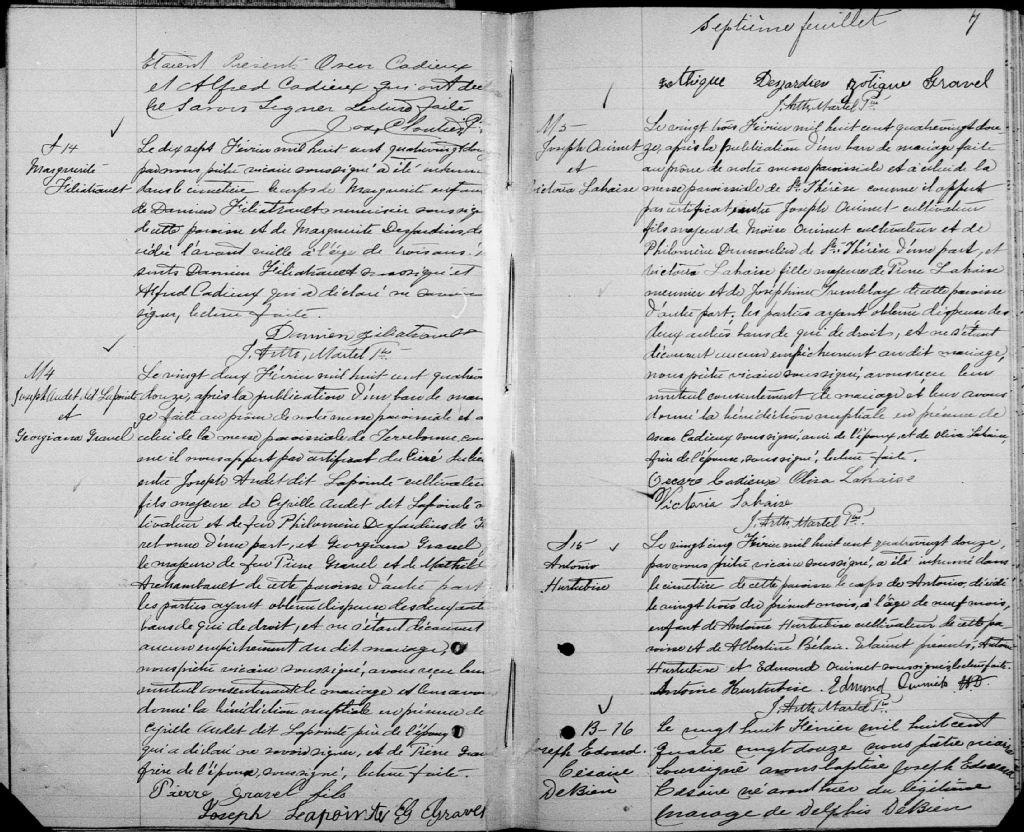 Etaient Presents Oscar Cadieux
et Alfred Cadieux qui ont dec
ne Savoir Signer Lecture faite
Jos Cloutier P.
S 14
Marguerite
Filiatrault
Le dix sept Février mil huit cent quatrevingt dou
par nous prêtre vicaire soussigné a été inhumé
dans le cimetière le corps de Marguerite enfan
de Damien Filiatrault menuisier soussigné
de cette paroisse et de Marguerite Desjardins, dé
cédée l'avant veille à l'âge de trois ans.
sents Damien Filiatrault soussigné et
Alfred Cadieux qui a déclaré ne savoir
signer, lecture faite.
Damien Filiatrault
J. Arth. Martel Ptre
M4
Joseph Audet dit Lapointe
et
Georgiana Gravel
Le vingt deux Février mil huit cent quatrevin
douze, après la publication d'un ban de maria
ge faite au prône de notre messe paroissiale et a
celui de la messe paroissiale de Terrebonne, com
me il nous appert par certificat du Curé du lieu
entre Joseph Audet dit Lapointe cultivateur
fils majeur de Cyrille Audet dit Lapointe cul
tivateur et de feu Philomène Desjardins de Ter
rebonne d'une part, et Georgiana Gravel,
le majeure de feu Pierre Gravel et de Mathild
Archambault de cette paroisse d'autre part
les parties ayant obtenu dispense des deux autres
bans de qui de droit, et ne s'étant découvert
aucun empêchement au dit mariage,
nous prêtre vicaire soussigné, avons reçu leur
mutuel consentement de mariage et leur avons
donné la bénédiction nuptiale en présence de
Cyrille Audet dit Lapointe père de l'époux
qui a déclaré ne savoir signer, et de Pierre Grav
frère de l'épouse, soussigné, lecture faite.
Pierre Gravel fils
Joseph Lapointe G Gravel
Septième feuillet 7
Desjardien Zotique Gravel
J. Arth. Martel Ptre
M5
Joseph Ouimet
et
Victoria Lahaise
Le vingt trois Février mil huit cent quatrevingt dou
ze, après la publication d'un ban de mariage faite
au prône de notre messe paroissiale et à celui de la
messe paroissiale de Ste Thérèse comme il appert
par certificat, entre Joseph Ouimet cultivateur
fils majeur de Moïse Ouimet cultivateur et de
Philomène Dumoulin de Ste Thérèse d'une part, et
Victoria Lahaise fille majeure de Pierre Lahaise
meunier et de Joséphine Tremblay de cette paroisse
d'autre part; les parties ayant obtenu dispense des
deux autres bans de qui de droits, et ne s'étant
découvert aucun empêchement au dit mariage,
nous prêtre vicaire soussigné, avons reçu leur
mutuel consentement de mariage et leur avons
donné la bénédiction nuptiale en présence de
Oscar Cadieux soussigné, ami de l'époux, et de Oliva Lahaise,
frère de l'épouse, soussigné, lecture faite.
Oscar Cadieux Oliva Lahaise
Victoria Lahaise
J. Arth Martel Ptre
S 15
Antonio
Hurtubise
Le vingt cinq Février mil huit cent quatrevingt douze,
par nous prêtre vicaire soussigné, a été inhumé dans
le cimetière de cette paroisse le corps de Antonio, décédé
le vingt trois du présent mois, à l'âge de neuf mois,
enfant de Antoine Hurtubise cultivateur de cette pa
roisse et de Albertine Bélair. Etaient présents, Antoine
Hurtubise et Edmond Ouimet soussignés, lecture faite.
Antoine Hurtubise. Edmond Ouimet
J. Arth Martel Ptre
B-16
Joseph Edouard.
Césaire
DeBien
Le vingt huit Février mil huit cent
quatre vingt douze nous prêtre vicaire
Soussigné avons baptisé Joseph Edouard
Césaire né avant hier du légitime
mariage de Delphis DeBien